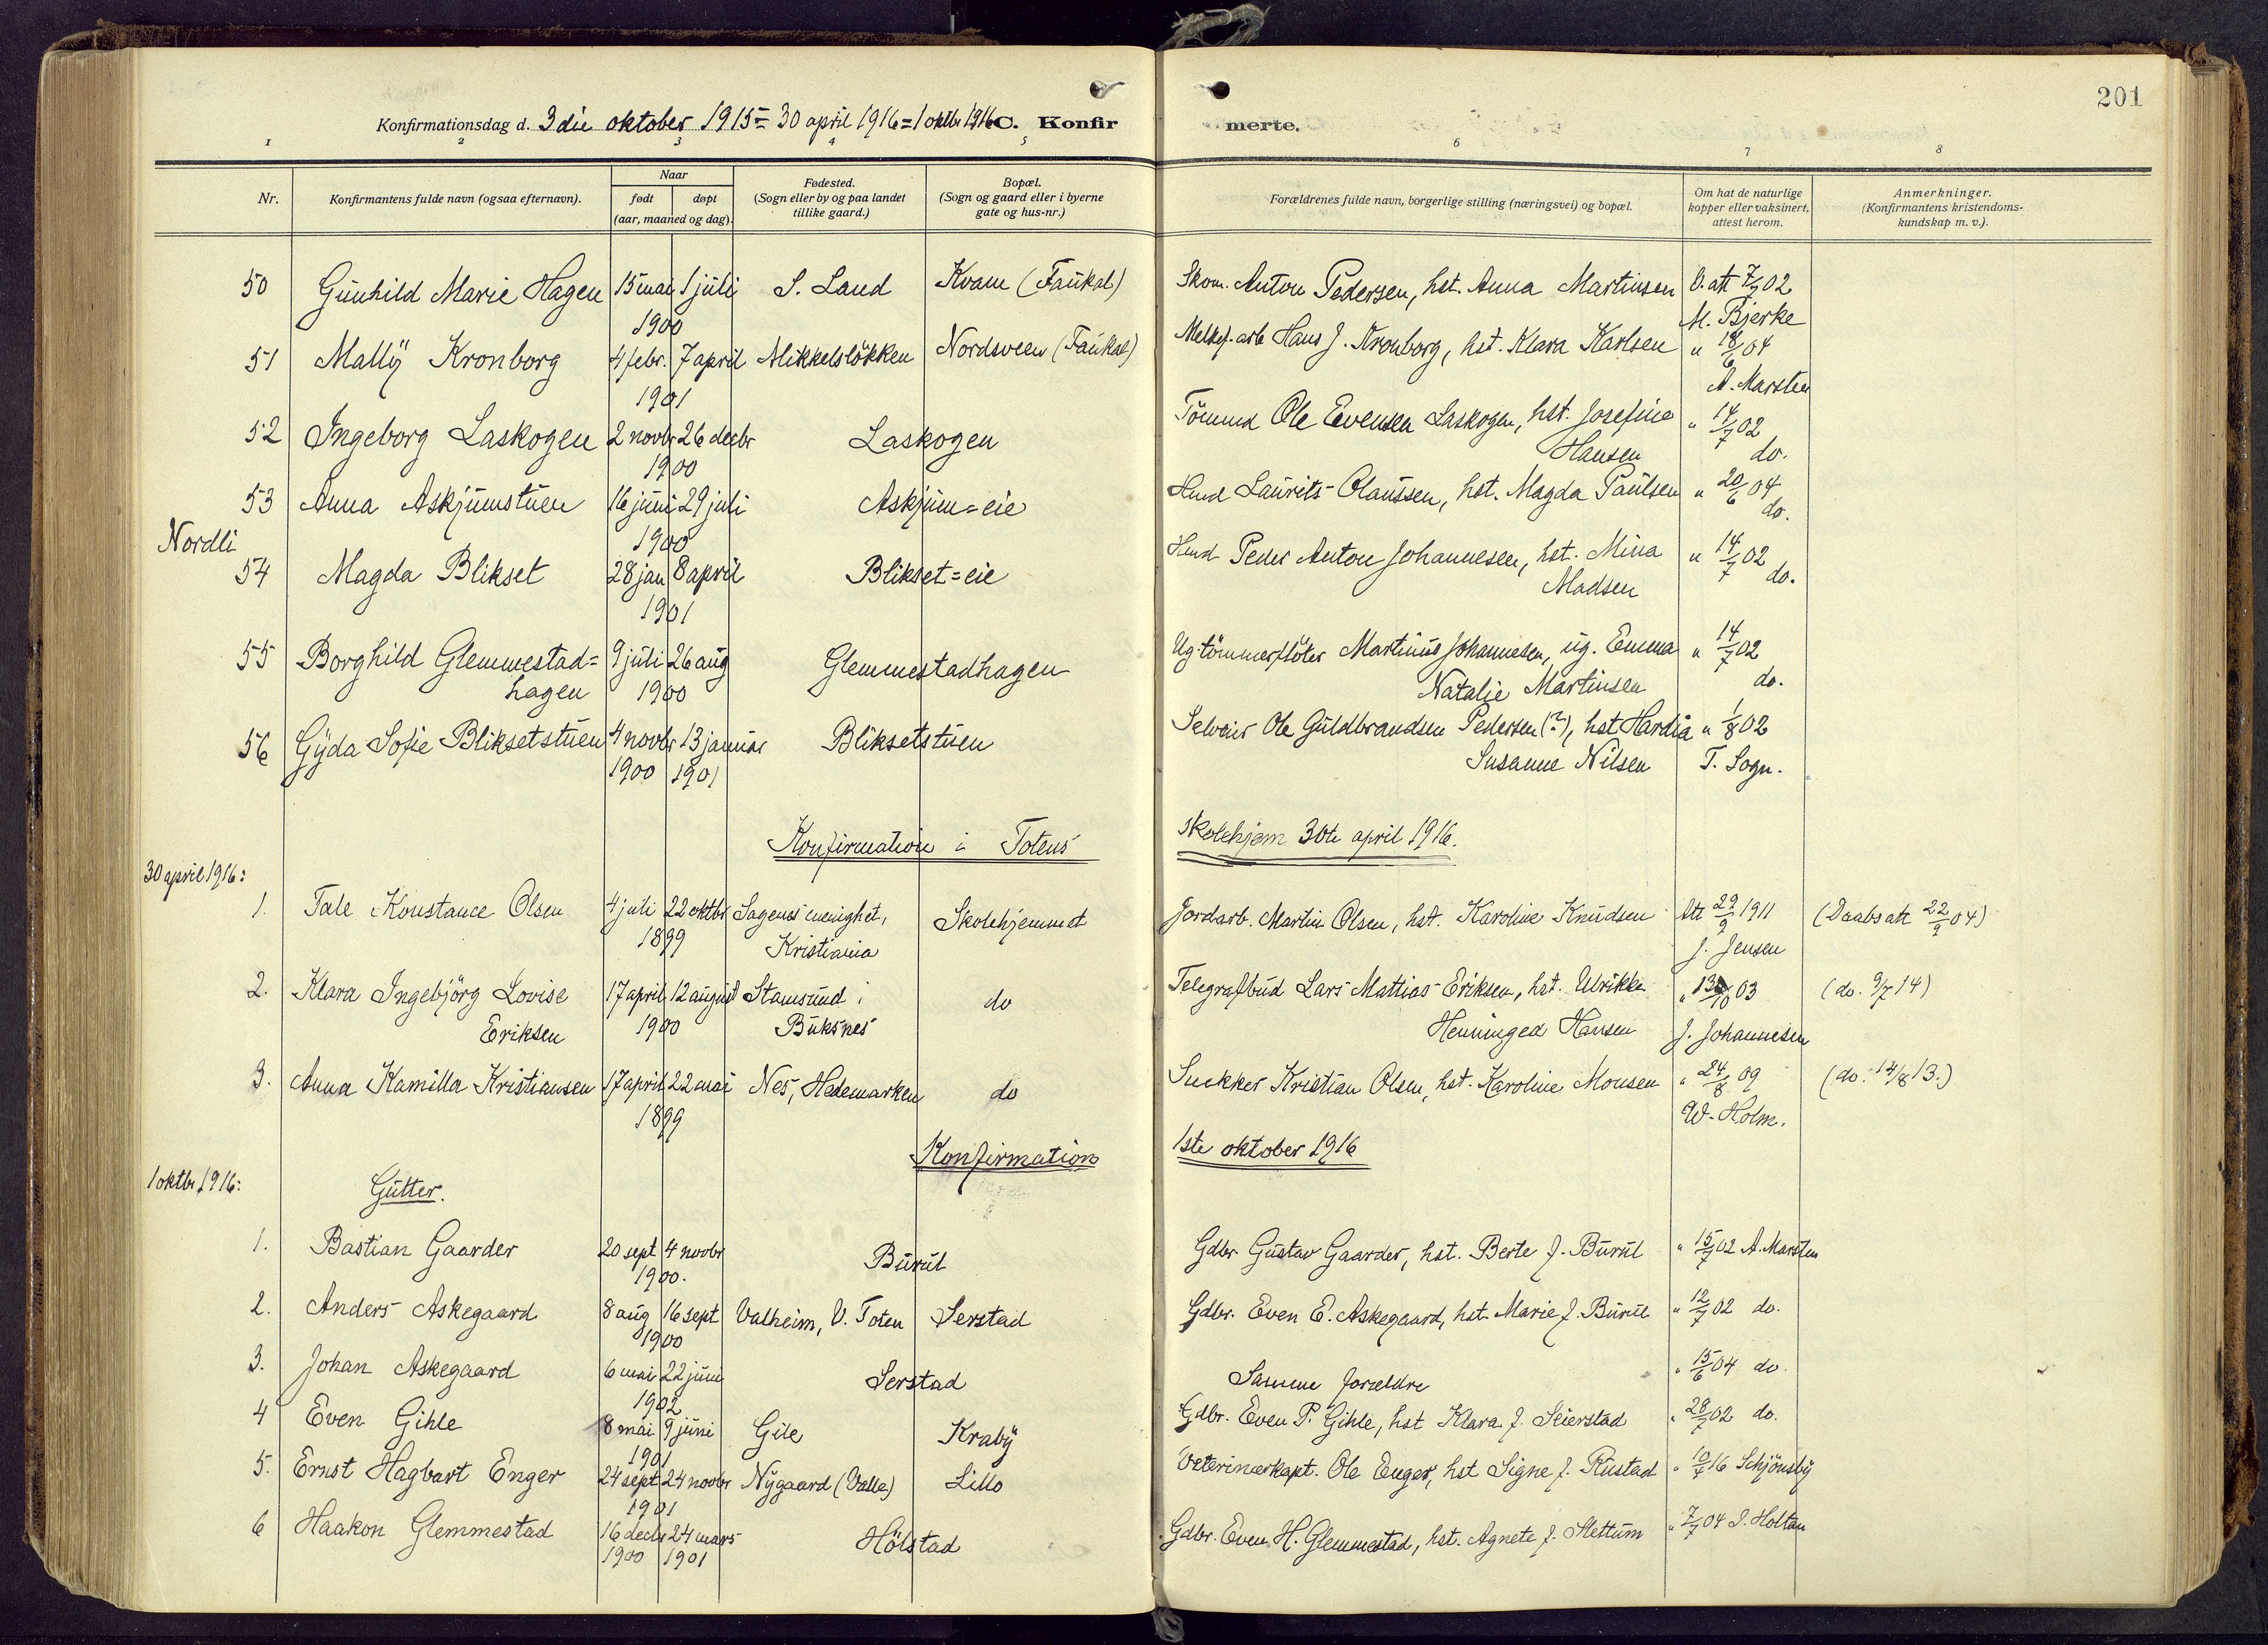 201
Konfirmationsdag d. 3die oktober 1915 = 30 april 1916 = 1 oktbr 1916 C. Konfirmerte.
1 2 3 4 5 6 7 8
Nr. Konfirmantens fulde navn (ogsaa efternavn). Naar født døpt (aar, maaned og dag). Fødested. (Sogn eller by og paa landet tillike gaard.) Bopæl. (Sogn og gaard eller i byerne gate og hus-nr.) Forældrenes fulde navn, borgerlige stilling (næringsvei) og bopæl. Om hat de naturlige kopper eller vaksinert, attest herom. Anmerkninger. (Konfirmantens kristendomskundskap m. v.).
50 Gunhild Marie Hagen 15 mai 1 juli S. Land Kvam (Faukal) Skom. Anton Pedersen, hst. Anna Martinsen V. att 7/9 02
1900 M. Bjerke
51 Mally Kronborg 4 febr. 7 april Mikkelsløkken Nordsveen (Faukal) Melkef.arb Hans J. Kronborg, hst. Klara Karlsen " 18/6 04
1901 A. Marsten
52 Ingeborg Laskogen 2 novbr 26 decbr Laskogen Tømmd Ole Evensen Laskogen, hst. Josefine " 14/7 02
1900 Hansen do.
53 Anna Askjumstuen 16 juni 29 juli Askjum=eie Hmd Laurits Olaussen, hst. Magda Paulsen " 20/6 04
1900 do.
Nordli
54 Magda Blikset 28 jan 8 april Blikset=eie Hmd Peder Anton Johannesen, hst. Mina " 14/7 02
1901 Madsen do.
55 Borghild Glemmestad= 9 juli 26 aug Glemmestadhagen Ug. tømmerfløter Martinus Johannesen, ug. Emma " 14/7 02
hagen 1900 Natalie Martinsen do.
56 Gyda Sofie Bliksetstuen 4 novbr 13 januar Bliksetstuen Selveier Ole Guldbrandsen Pedersen (?), hst. Hardia " 1/8 02
1900 1901 Susanne Nilsen T. Sogn.
Konfirmation i Totens skolehjem 30te april 1916.
30 april 1916:
1. Tale Konstance Olsen 4 juli 22 oktbr Sagenes menighet, Skolehjemmet Jordarb. Martin Olsen, hst. Karoline Knudsen Att 29/9 1911 (Daabsatt 22/9 04)
1899 Kristiania J. Jensen
2. Klara Ingebjørg Lovise 17 april 12 august Stamsund i do Telegrafbud Lars Mattias Eriksen, hst. Ulrikke " 13/10 03 (do. 9/7 14)
Eriksen 1900 Buksnes Henninged Hansen J. Johannesen
3. Anna Kamilla Kristiansen 17 april 22 mai Nes, Hedemarken do Snekker Kristian Olsen, hst. Karoline Monsen " 24/8 09 (do. 14/8 13.)
1899 W. Holm.
Konfirmation 1ste oktober 1916
1 oktbr 1916:
Gutter.
1. Bastian Gaarder 20 sept 4 novbr Burul Gdbr Gustav Gaarder, hst. Berte f. Burul " 15/7 02 A. Marsten
1900.
2. Anders Askegaard 8 aug 16 sept Valheim, V. Toten Serstad Gdbr. Even E. Askegaard, hst. Marie f. Burul " 12/7 02 do.
1900
3. Johan Askegaard 6 mai 22 juni Serstad Samme forældre " 15/6 04 do.
1902
4 Even Gihle 8 mai 9 juni Gile Kraby Gdbr. Even P. Gihle, hst Klara f. Seierstad " 28/7 02 do.
1901
5. Ernst Hagbart Enger 24 sept 24 novbr Nygaard (Valle) Lillo Veterinærkapt. Ole Enger, hst Signe f. Rustad " 10/7 16 Schjønsby
1901
6 Haakon Glemmestad 16 decbr 24 mars Hölstad Gdbr. Even H. Glemmestad, hst. Agnete f. Slettum " 7/7 04 I. Holtan
1900 1901